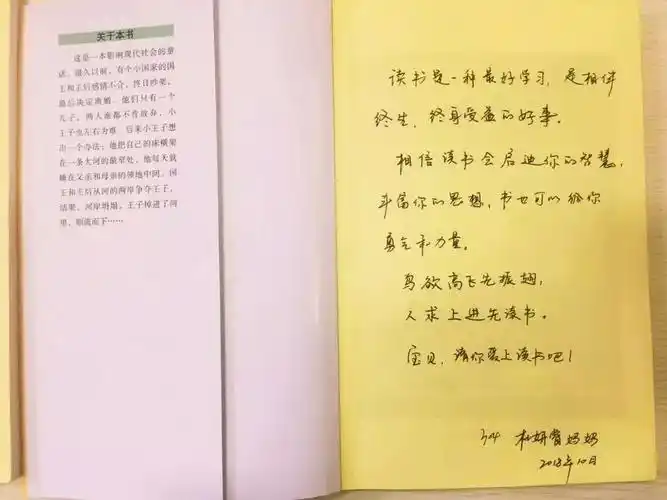 关于本书
这是一本影响现代社会的童
话。很久以前，有个小国家的国
王和王后感情不合，终日吵架，
最后决定离婚。他们只有一个
儿子，两人谁都不肯放弃，小
王子也左右为难。后来小王子想
出一个办法：他把自己的床横架
在一条大河的最窄处，他每天就
睡在父亲和母亲的领地中间。国
王和王后从河的两岸争夺王子，
结果，河岸坍塌，王子掉进了河
里，顺流而下……
读书是一种最好学习，是相伴
终生，终身受益的好事。
相信读书会启迪你的智慧，
丰富你的思想，书也可以给你
勇气和力量。
鸟欲高飞先振翅，
人求上进先读书。
宝贝，请你爱上读书吧！
304 妈妈
2018年10月